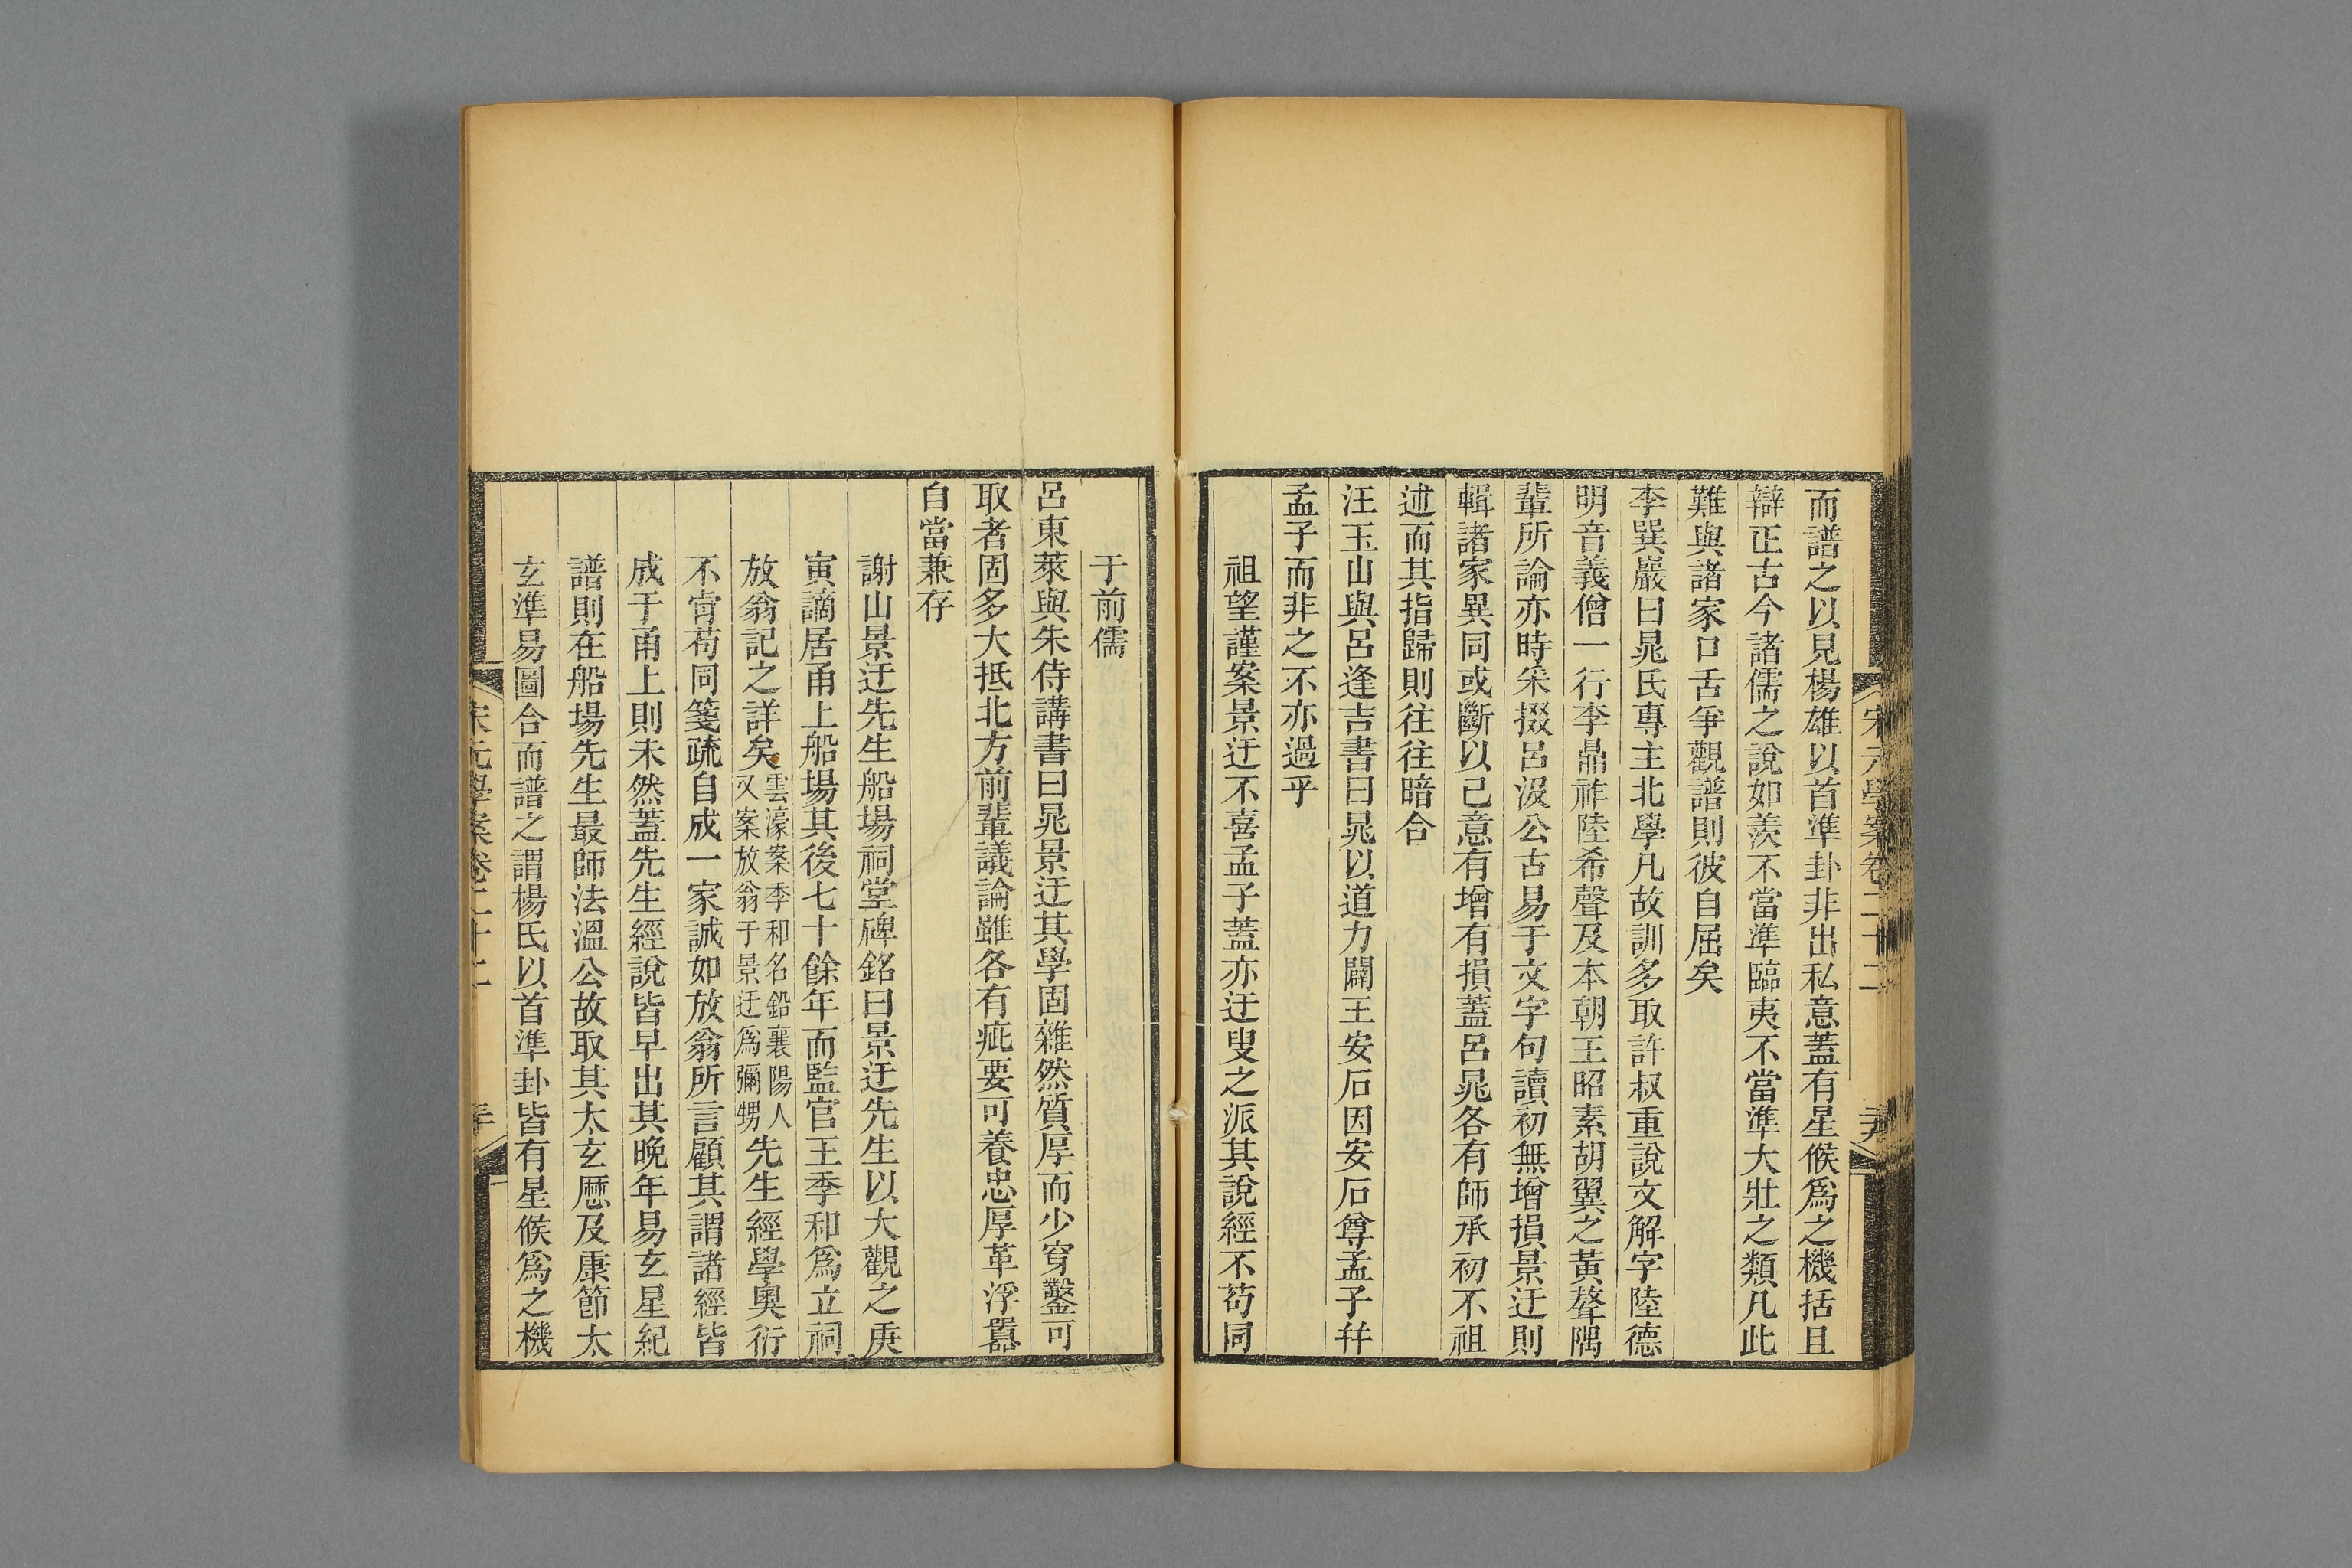 宋元學案卷二十二
而譜之以見楊雄以首準卦非出私意蓋有星候爲之機括且
辯正古今諸儒之說如羨不當準臨夷不當準大壯之類凡此
難與諸家口舌爭觀譜則彼自屈矣
李巽巖曰晁氏專主北學凡故訓多取許叔重說文解字陸德
明音義僧一行李鼎祚陸希聲及本朝王昭素胡翼之黃聱隅
輩所論亦時采掇呂汲公古易于文字句讀初無增損景迂則
輯諸家異同或斷以己意有增有損蓋呂晁各有師承初不祖
述而其指歸則往往暗合
汪玉山與呂逢吉書曰晁以道力闢王安石因安石尊孟子幷
孟子而非之不亦過乎
祖望謹案景迂不喜孟子蓋亦迂叟之派其說經不苟同
于前儒
呂東萊與朱侍講書曰晁景迂其學固雜然質厚而少穿鑿可
取者固多大抵北方前輩議論雖各有疵要可養忠厚革浮囂
自當兼存
謝山景迂先生船場祠堂碑銘曰景迂先生以大觀之庚
寅謫居甬上船場其後七十餘年而監官王季和爲立祠
放翁記之詳矣雲濠案季和名鉛襄陽人又案放翁于景迂爲彌甥先生經學奧衍
不肯苟同箋疏自成一家誠如放翁所言顧其謂諸經皆
成于甬上則未然蓋先生經說皆早出其晚年易玄星紀
譜則在船場先生最師法溫公故取其太玄厯及康節太
玄準易圖合而譜之謂楊氏以首準卦皆有星候爲之機
宋元學案卷二十二